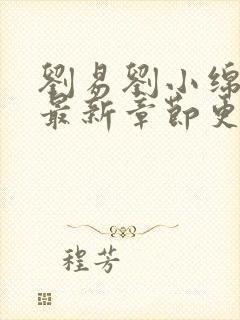 劉易劉小绵
最新章節更
程芳